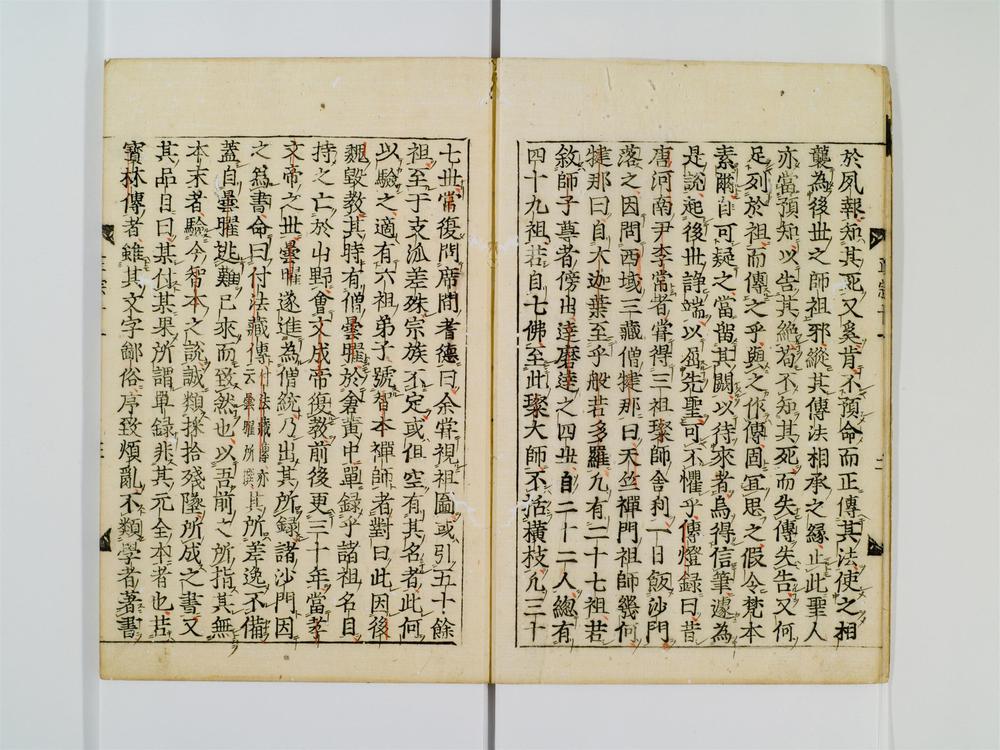 於夙報知其死又奚肯不預命而正傳其法使之相
襲為後世之師祖邪縱其傳法相承之緣止此聖人
亦當預知以告其絕苟不知其死而失傳失告又何
足列於祖而傳之乎與之作傳固宜思之假令梵本
素爾自可疑之當留其闕以待來者烏得信筆遽為
是說起後世諍端以屈先聖可不懼乎傳燈錄曰昔
唐河南尹李常者甞得三祖璨師舍利一日飯沙門
落之因問西域三藏僧犍那曰天竺禪門祖師幾何
犍那曰自大迦葉至乎般若多羅凡有二十七祖若
敘師子尊者傍出達磨達之四世自二十二人總有
四十九祖若自七佛至此璨大師不括橫枝凡三十
七世常復問席間耆德曰余甞視祖圖或引五十餘
祖至于支泒差殊宗族不定或但空有其名者此何
以驗之適有六祖弟子號智本禪師者對曰此因後
魏毀教其時有僧曇曜於倉黃中單錄乎諸祖名目
持之亡於山野會文成帝復教前後更三十年當孝
文帝之世曇曜遂進為僧統乃出其所錄諸沙門因
之為書命曰付法藏傳付法藏傳亦云曇曜所撰其所差逸不備
蓋自曇曜逃難已來而致然也以吾前之所指其無
本末者驗今智本之說誠類採拾殘墜所成之書又
其品目曰某付某果所謂單錄非其元全本者也若
寶林傳者雖其文字鄙俗序致煩亂不類學者著書